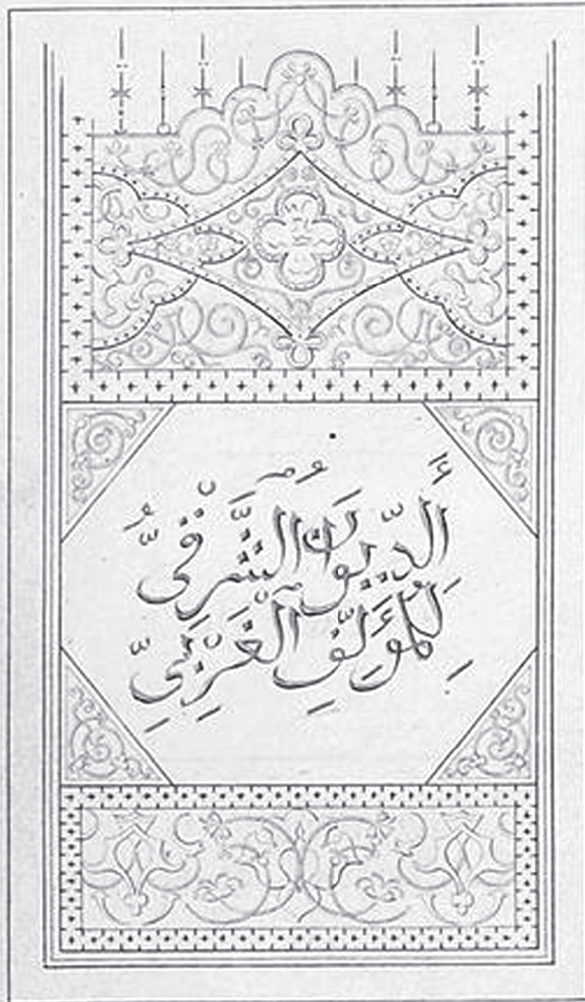 أَلدِّيوَانُ الشَّرْقِىُّ
لِلْمُؤَلِّفِ الْغَرْبِىِّ